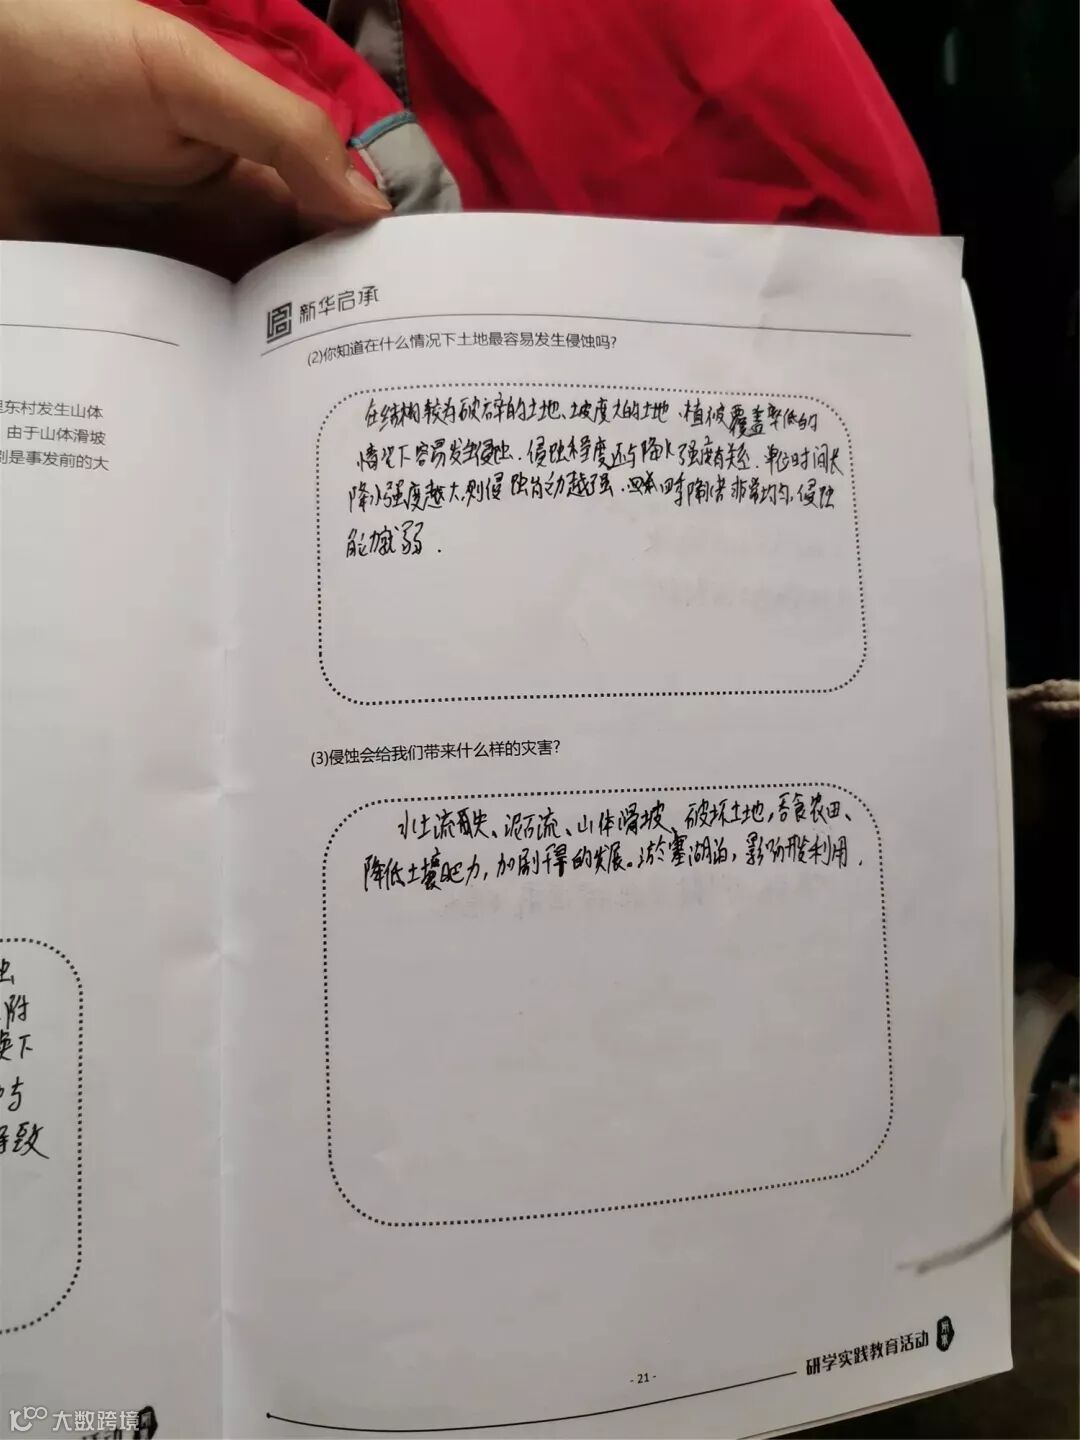 新华启承
(2)你知道在什么情况下土地最容易发生侵蚀吗?
在结构较为破碎的土地、坡度大的土地、植被覆盖率低的
情况下容易发生侵蚀.侵蚀程度还与降水强度有关系.单位时间长
降水强度越大,则侵蚀能力越强.四季降水非常均匀,侵蚀
能力减弱.
(3)侵蚀会给我们带来什么样的灾害?
水土流失、泥石流、山体滑坡、破坏土地,吞食农田、
降低土壤肥力,加剧干旱的发展。淤塞湖泊,影响开发利用.
研学实践教育活动
- 21 -
里东村发生山体
由于山体滑坡
别是事发前的大
附
换下
与
导致
大数跨境